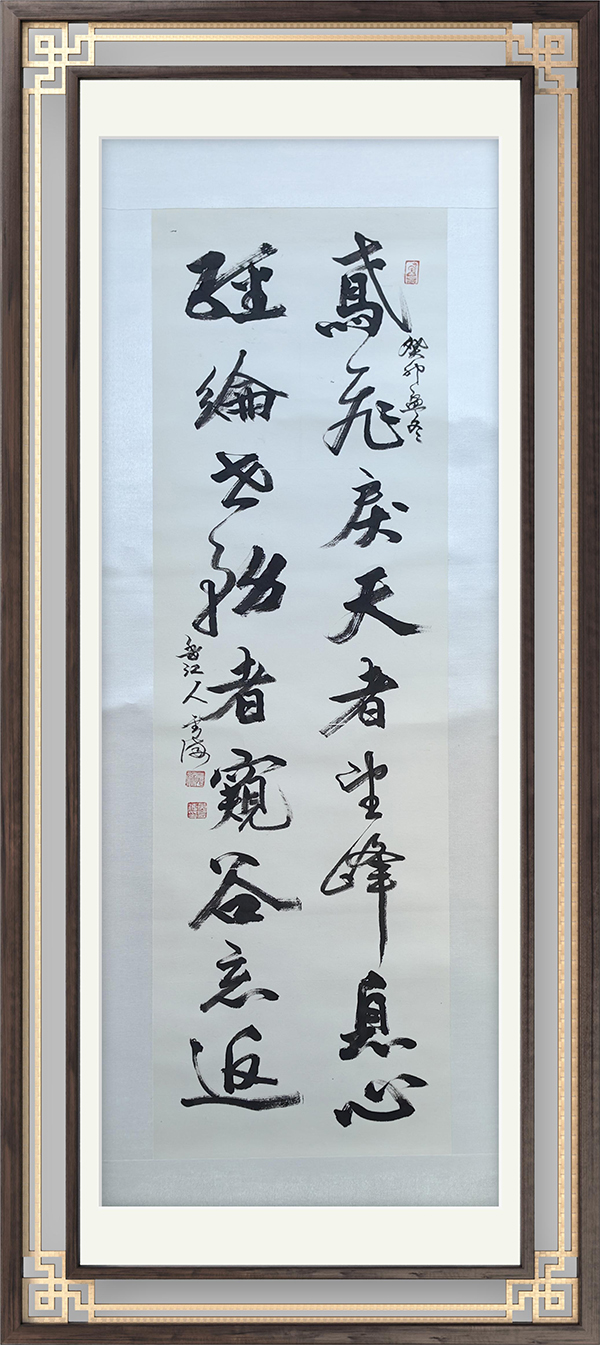 癸卯孟冬
鳶飛戾天者望峰息心
經綸世務者窺谷忘返
江人